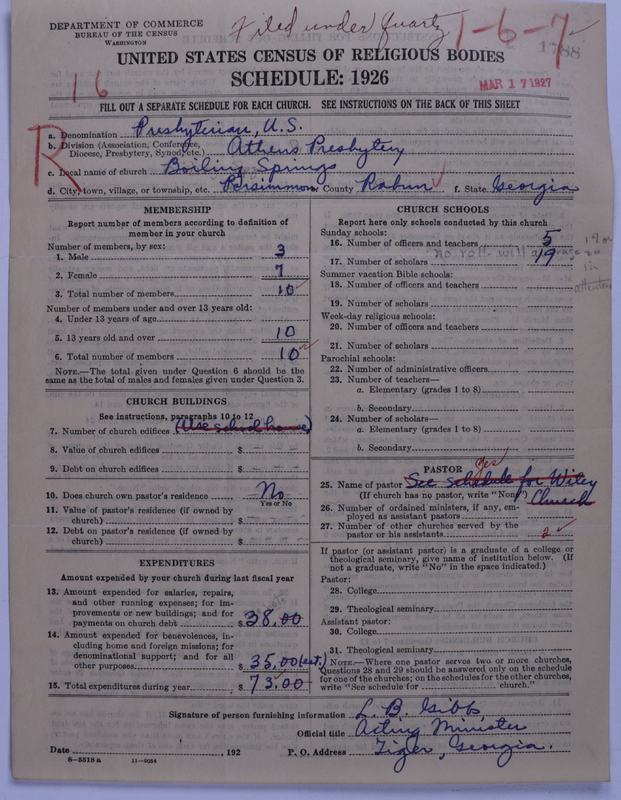 DEPARTMENT OF COMMERCE
BUREAU OF THE CENSUS
WASHINGTON
Filed under Quartz
1-6-7
1788
UNITED STATES CENSUS OF RELIGIOUS BODIES
SCHEDULE: 1926
16
MAR 17 1927
FILL OUT A SEPARATE SCHEDULE FOR EACH CHURCH. SEE INSTRUCTIONS ON THE BACK OF THIS SHEET
R
a. Denomination Presbyterian, U.S.
b. Division (Association, Conference, Diocese, Presbytery, Synod, etc.) Athens Presbytery
c. Local name of church Boiling Springs
d. City, town, village, or township, etc. Persimmon e. County Rabun f. State Georgia
MEMBERSHIP
Report number of members according to definition of
member in your church
Number of members, by sex:
1. Male 3
2. Female 7
3. Total number of members 10
Number of members under and over 13 years old:
4. Under 13 years of age
5. 13 years old and over 10
6. Total number of members 10
NOTE.—The total given under Question 6 should be the
same as the total of males and females given under Question 3.
CHURCH BUILDINGS
See instructions, paragraphs 10 to 12
7. Number of church edifices (Use school house)
8. Value of church edifices $
9. Debt on church edifices $
10. Does church own pastor's residence No
Yes or No
11. Value of pastor's residence (if owned by
church) $
12. Debt on pastor's residence (if owned by
church) $
EXPENDITURES
Amount expended by your church during last fiscal year
13. Amount expended for salaries, repairs,
and other running expenses; for im-
provements or new buildings; and for
payments on church debt $ 38.00
14. Amount expended for benevolences, in-
cluding home and foreign missions; for
denominational support; and for all
other purposes $ 35.00 (est.)
15. Total expenditures during year $ 73.00
CHURCH SCHOOLS
Report here only schools conducted by this church
Sunday schools:
16. Number of officers and teachers 5
no roll will average
17. Number of scholars 19
19 or 20 in attendance
Summer vacation Bible schools:
18. Number of officers and teachers
19. Number of scholars
Week-day religious schools:
20. Number of officers and teachers
21. Number of scholars
Parochial schools:
22. Number of administrative officers
23. Number of teachers—
a. Elementary (grades 1 to 8)
b. Secondary
24. Number of scholars—
a. Elementary (grades 1 to 8)
b. Secondary
PASTOR
yes
25. Name of pastor See schedule for Wiley
(If church has no pastor, write "None") Church
26. Number of ordained ministers, if any, em-
ployed as assistant pastors
27. Number of other churches served by the
pastor or his assistants 2
If pastor (or assistant pastor) is a graduate of a college or
theological seminary, give name of institution below. (If
not a graduate, write "No" in the space indicated.)
Pastor:
28. College
29. Theological seminary
Assistant pastor:
30. College
31. Theological seminary
NOTE.—Where one pastor serves two or more churches,
Questions 28 and 29 should be answered only on the schedule
for one of the churches; on the schedules for the other churches,
write "See schedule for church."
Signature of person furnishing information L. B. Gibbs
Official title Acting Minister
Date , 192 P. O. Address Tiger, Georgia.
8-5518 a 11-9054